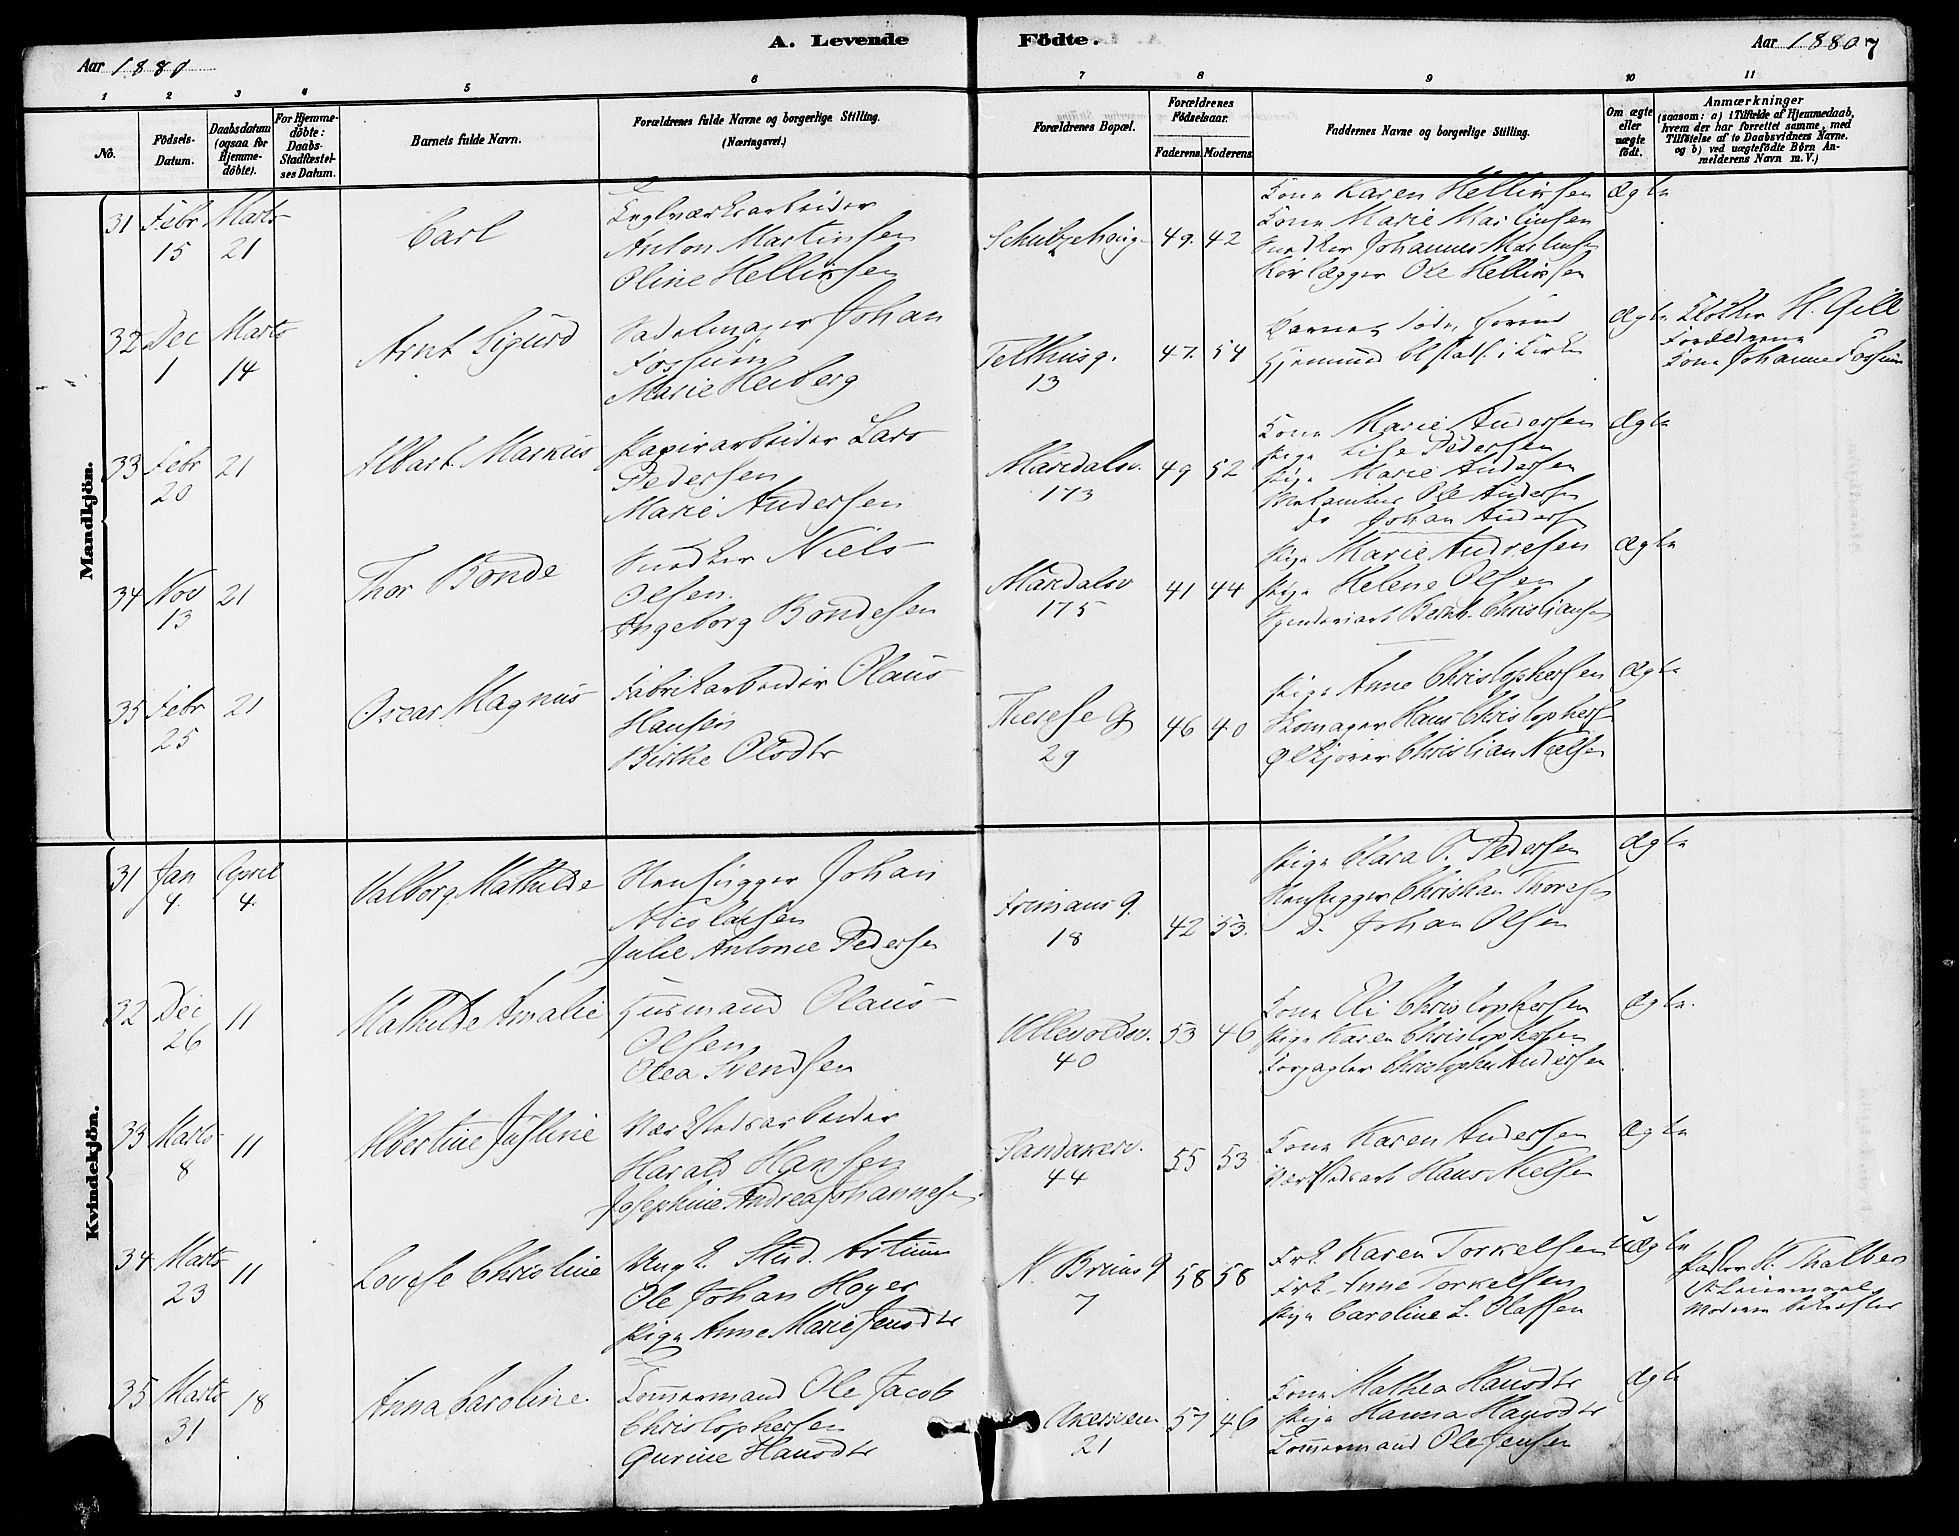 A. Levende Födte.
Aar 1880
Aar 1880 7
1 2 3 4 5 6 7 8 9 10 11
No.
Födsels-Datum.
Daabsdatum (ogsaa for Hjemme-döbte).
For Hjemme-döbte: Daabs-Stadfæstel-ses Datum.
Barnets fulde Navn.
Forældrenes fulde Navne og borgerlige Stilling. (Næringsvei.)
Forældrenes Bopæl.
Forældrenes Födselsaar.
Faderens. Moderens.
Faddernes Navne og borgerlige Stilling.
Om ægte eller uægte födt.
Anmærkninger
(saasom: a) i Tilfælde af Hjemmedaab,
hvem der har forrettet samme, med
Tilföielse af to Daabsvidners Navne.
og b) ved uægtefödte Börn An-
melderens Navn m. V.)
Mandkjön.
31 Febr 15 Marts 21
Carl
Anton Martinsen
Oline Hellissen
49. 42
Kone Karen Hellissen
Kone Marie Martinsen
Snedker Johannes Martinsen
Rörlægger Ole Hellissen
Ægte
32 Dec 1 Marts 14
Arnt Sigurd
Sadelmager Johan
Fossum
Marie Heiberg
Telthusg.
13
47. 54
Hjemmed. i Kirken
Ægte
H. Gill
Forældrene
Kone Johanne Fossum
33 Febr 20 21
Albart Markus
Papirarbeider Lars
Pedersen
Marie Andersen
Maridalsv.
173
49 52
Kone Marie Andersen
Pige Lise Pedersen
Pige Marie Andersen
Ole Andersen
do Johan Andersen
Ægte
34 Nov 13 21
Thor Bonde
Snedker Niels
Olsen.
Ingeborg Bondesen
Maridalsv
175
41 44
Pige Marie Andresen
Pige Helene Olsen
Bernh. Christiansen
Ægte
35 Febr 25 21
Oscar Magnus
Fabrikarbeider Olaus
Hansen
Birthe Olsdtr
Therese G
29
46 40
Pige Anne Christophersen
Skomager Hans Christophersen
Ølkjører Christian Nielsen
Ægte
Kvindekjön.
31 Jan 4. April 4.
Valborg Mathilde
Stenhugger Johan
Nicolaysen
Julie Antonie Pedersen
Frimans g.
18
42 53.
Pige Clara P. Pedersen
Stenhugger Christian Thoresen
D. Johan Olsen
Ægte
32 Dec 26 11
Mathilde Amalie
Husmand Olaus
Olsen
Olea Svendsen
Ullevoldsv.
40
53 46
Kone Eli Christophersen
Pige Karen Christophersen
Forpagter Christopher Andersen
Ægte.
33 Marts 8 11
Albertine Justine
Værkstedsarbeider
Harald Hansen
Josephine Andrea Johannesen
Sandakerv.
44
55 53
Kone Karen Andersen
Værkstedsarb Hans Nielsen
Ægte
34 Marts 23 11
Lovise Christine
Ungk. Stud. Artium
Ole Johan Hoyer
Pige Anne Marie Jensdtr
N. Bruns g
7
58 58
Frk. Karen Torkelsen
Frk. Anne Torkelsen
Pige Caroline L. Olassen
Uægte
Pastor K. Thalberg
Moderen bekræfter
35 Marts 31 18
Anna Caroline
Tömmermand Ole Jacob
Christophersen
Gurine Hansdtr
Akersveien
21
57 46
Kone Mathea Hansdtr
Pige Hanna Hansdtr
Tömmermand Ole Jensen
Ægte